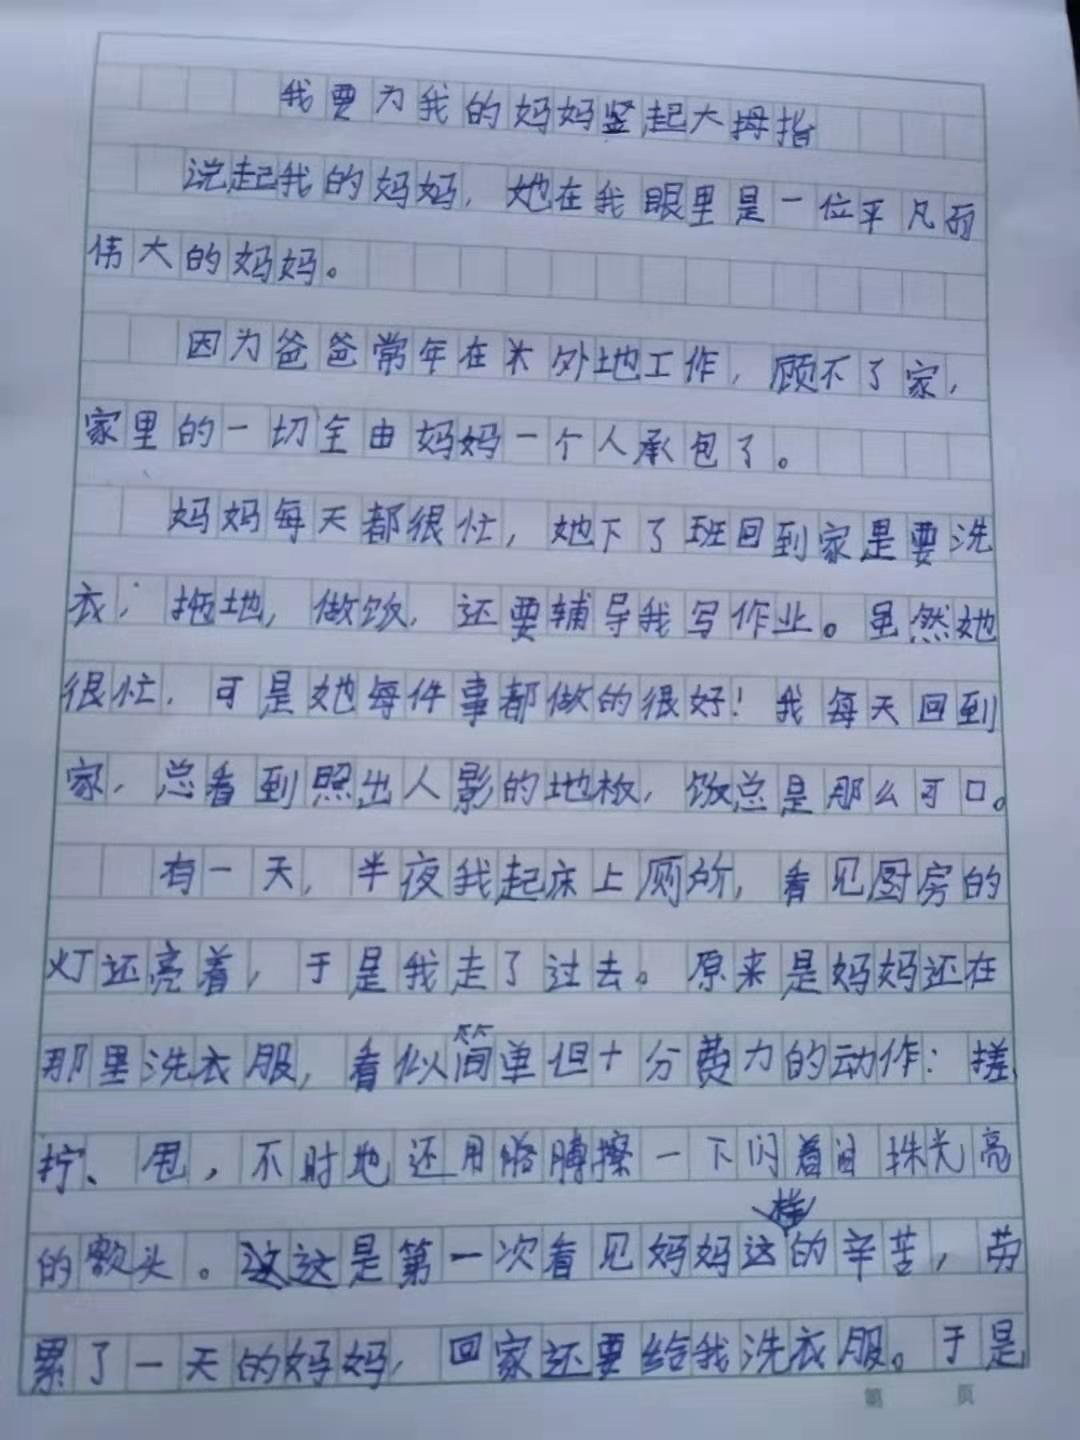 我要为我的妈妈竖起大拇指
说起我的妈妈，她在我眼里是一位平凡而
伟大的妈妈。
因为爸爸常年在外地工作，顾不了家，
家里的一切全由妈妈一个人承包了。
妈妈每天都很忙，她下了班回到家是要洗
衣，拖地，做饭，还要辅导我写作业。虽然她
很忙，可是她每件事都做的很好！我每天回到
家，总看到照出人影的地板，饭总是那么可口。
有一天，半夜我起床上厕所，看见厨房的
灯还亮着，于是我走了过去。原来是妈妈还在
那里洗衣服，看似简单但十分费力的动作：搓、
拧、甩，不时地还用胳膊擦一下闪着珠光亮
的额头。这是第一次看见妈妈这样的辛苦，劳
累了一天的妈妈，回家还要给我洗衣服。于是
第 页